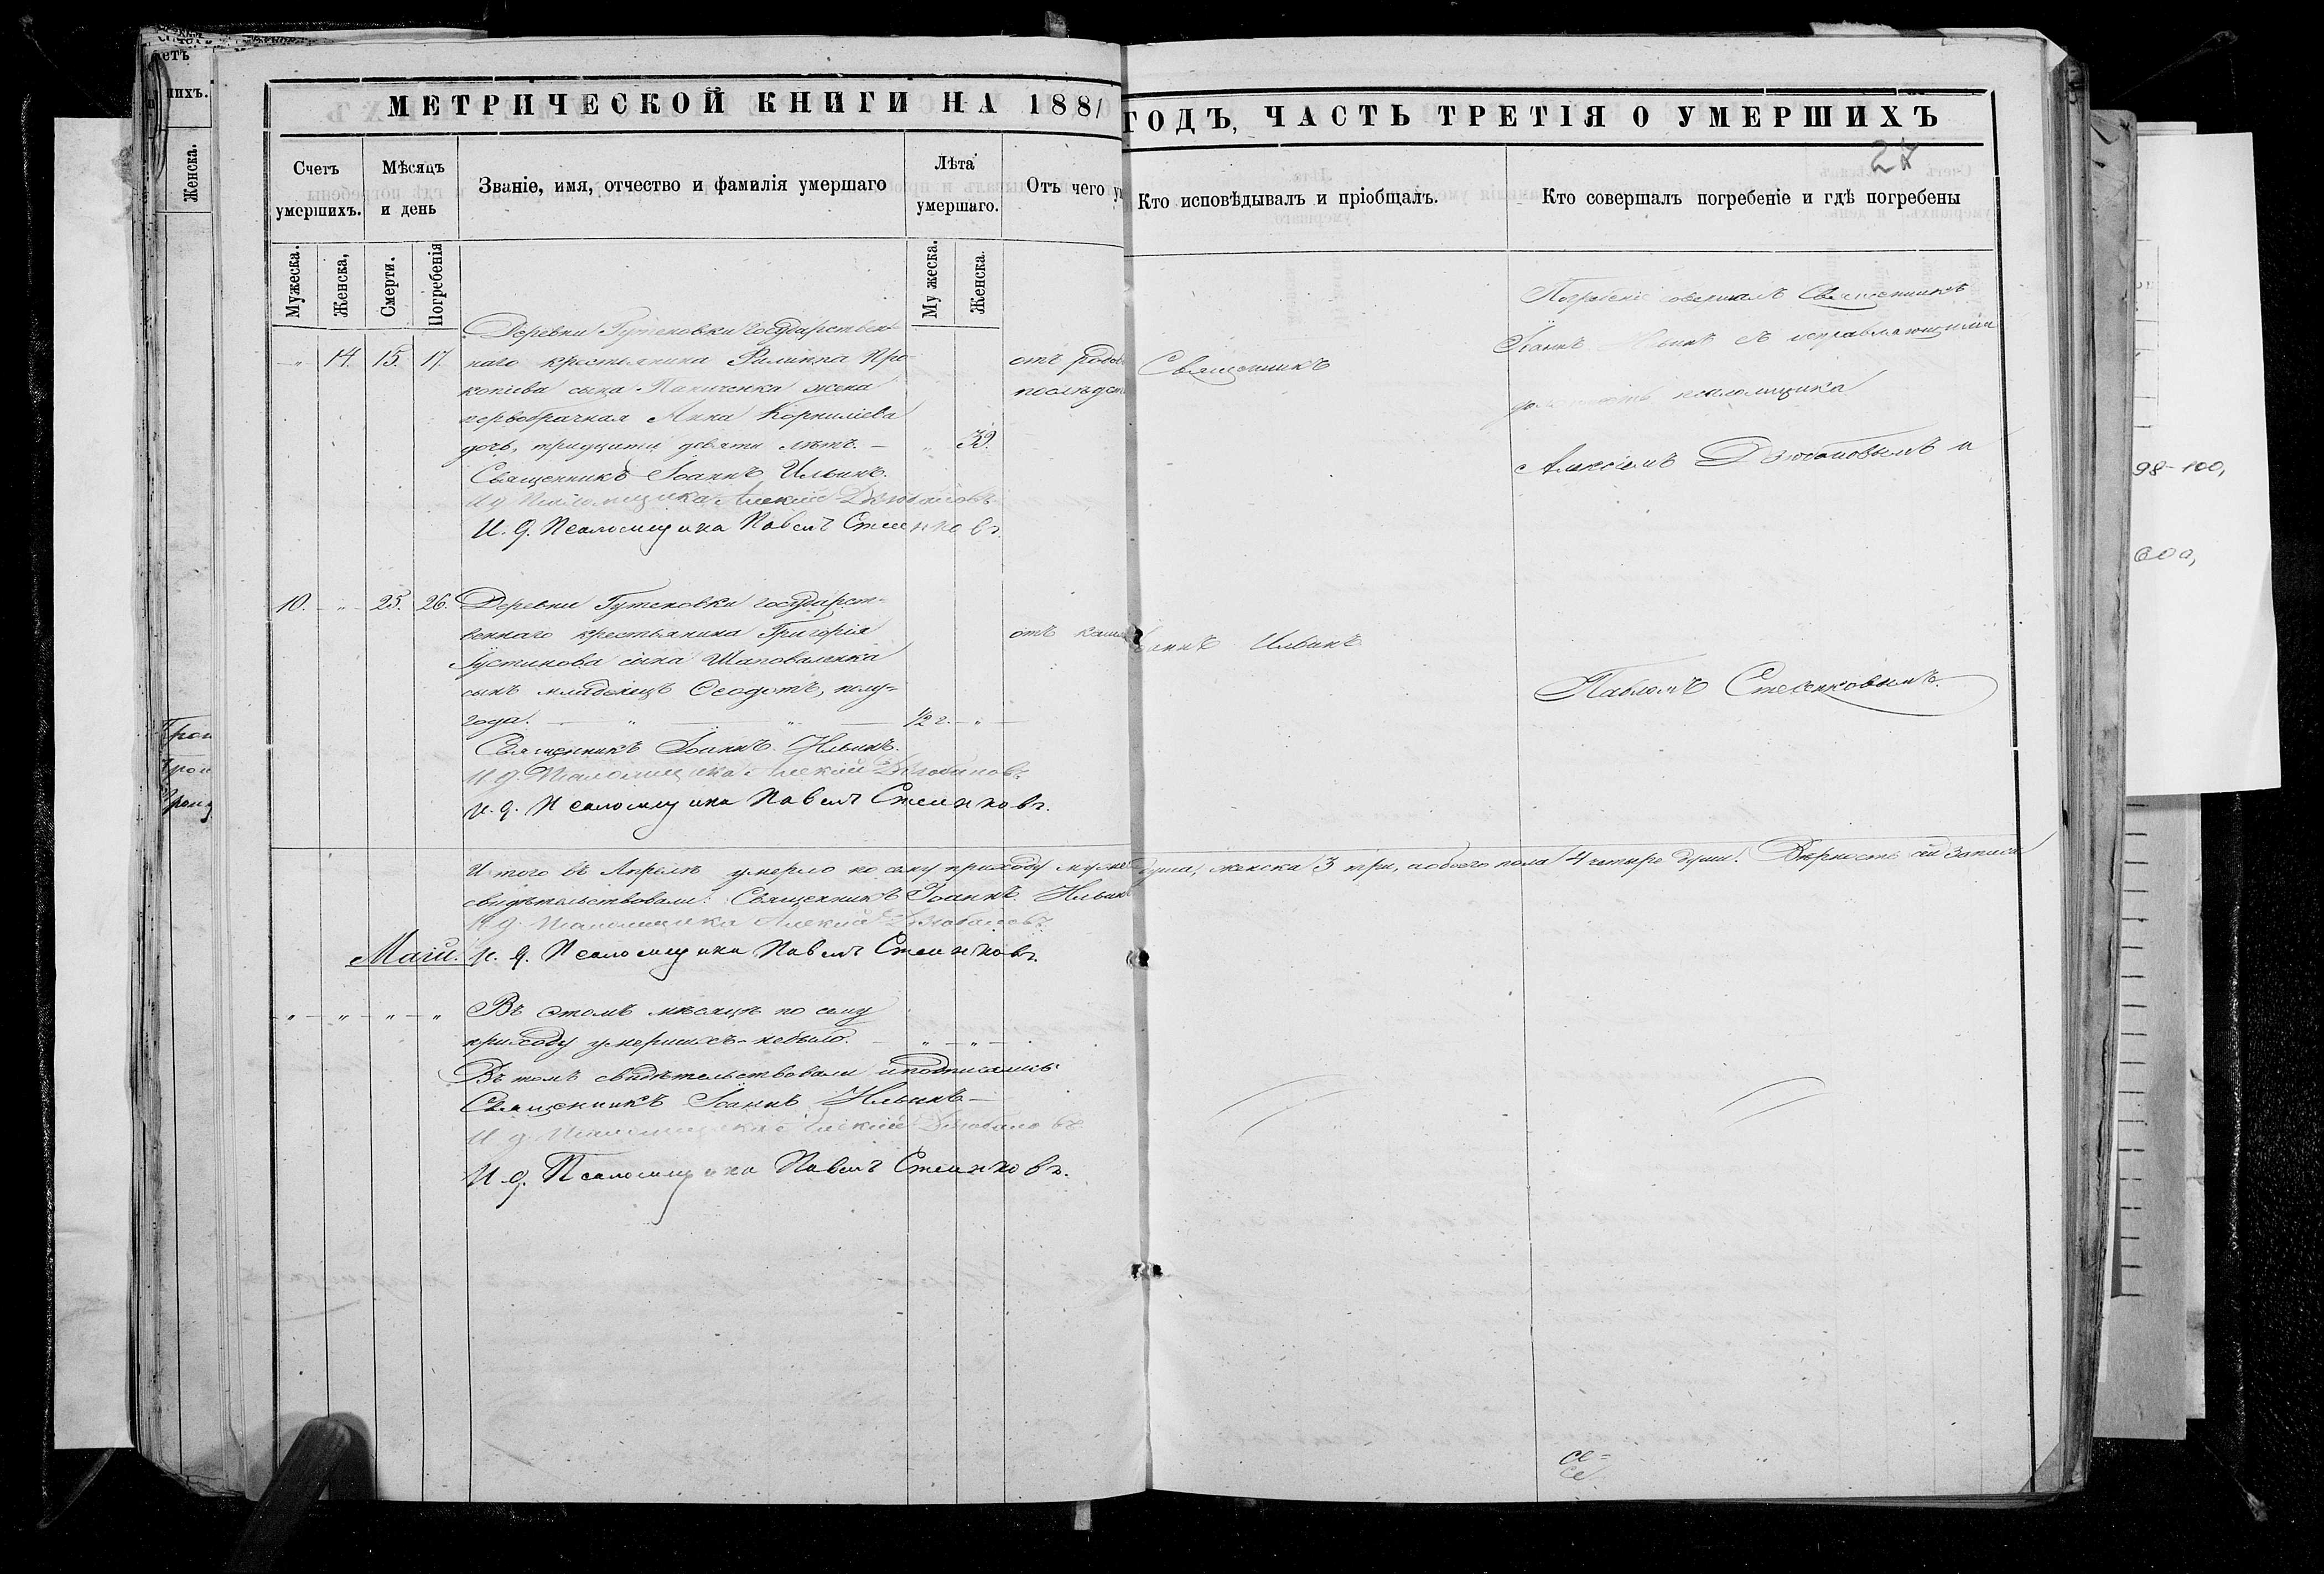 МЕТРИЧЕСКОЙ КНИГИ НА 1881
ГОДЪ, ЧАСТЬ ТРЕТІЯ О УМЕРШИХЪ
Счетъ умершихъ.
Мѣсяцъ и день
Званіе, имя, отчество и фамилія умершаго
Лѣта умершаго.
Отъ чего
Кто исповѣдывалъ и пріобщалъ.
Кто совершалъ погребеніе и гдѣ погребены
Мужеска.
Женска,
Смерти.
Погребенія
Мужеска.
Женска.
Деревни Гутеновки государствен-
14. 15. 17. наго крестьянина Филиппа Про-
копіева сына Паниченка жена
первобрачная Анна Корниліева
дочь, тридцати девяти лѣтъ. — 39.
Священникъ Іоаннъ Ильинъ.
И. д. Псаломщика Алексій
И. д. Псаломщика Павелъ
отъ родо
послѣдст
Священникъ
Погребеніе совершалъ Священникъ
Іоаннъ Ильинъ съ исправляющими
должность псаломщика
Алексіемъ и
10. 25. 26. Деревни Гутеновки государст-
веннаго крестьянина Григорія
Іустинова сына Шаповаленка
сынъ младенецъ Ѳеодотъ, полу-
года. — 1/2 г.
Священникъ Іоаннъ Ильинъ.
И. д. Псаломщика Алексій
И. д. Псаломщика Павелъ
отъ каш
Іоаннъ Ильинъ
Павломъ
Итого въ Апрелѣ умерло по сему приходу муже
душа, женска 3 три, а обоего пола 4 четыре души. Вѣрность сей записи
свидѣтельствовали: Священникъ Іоаннъ Ильинъ
И. д. Псаломщика Алексій
Май. И. д. Псаломщика Павелъ
Въ этомъ мѣсяцѣ по сему
приходу умершихъ-небыло.
Въ томъ свидѣтельствовали и подписались
Священникъ Іоаннъ Ильинъ —
И. д. Псаломщика Алексій
И. д. Псаломщика Павелъ
нихъ.
Женска.
98-100,